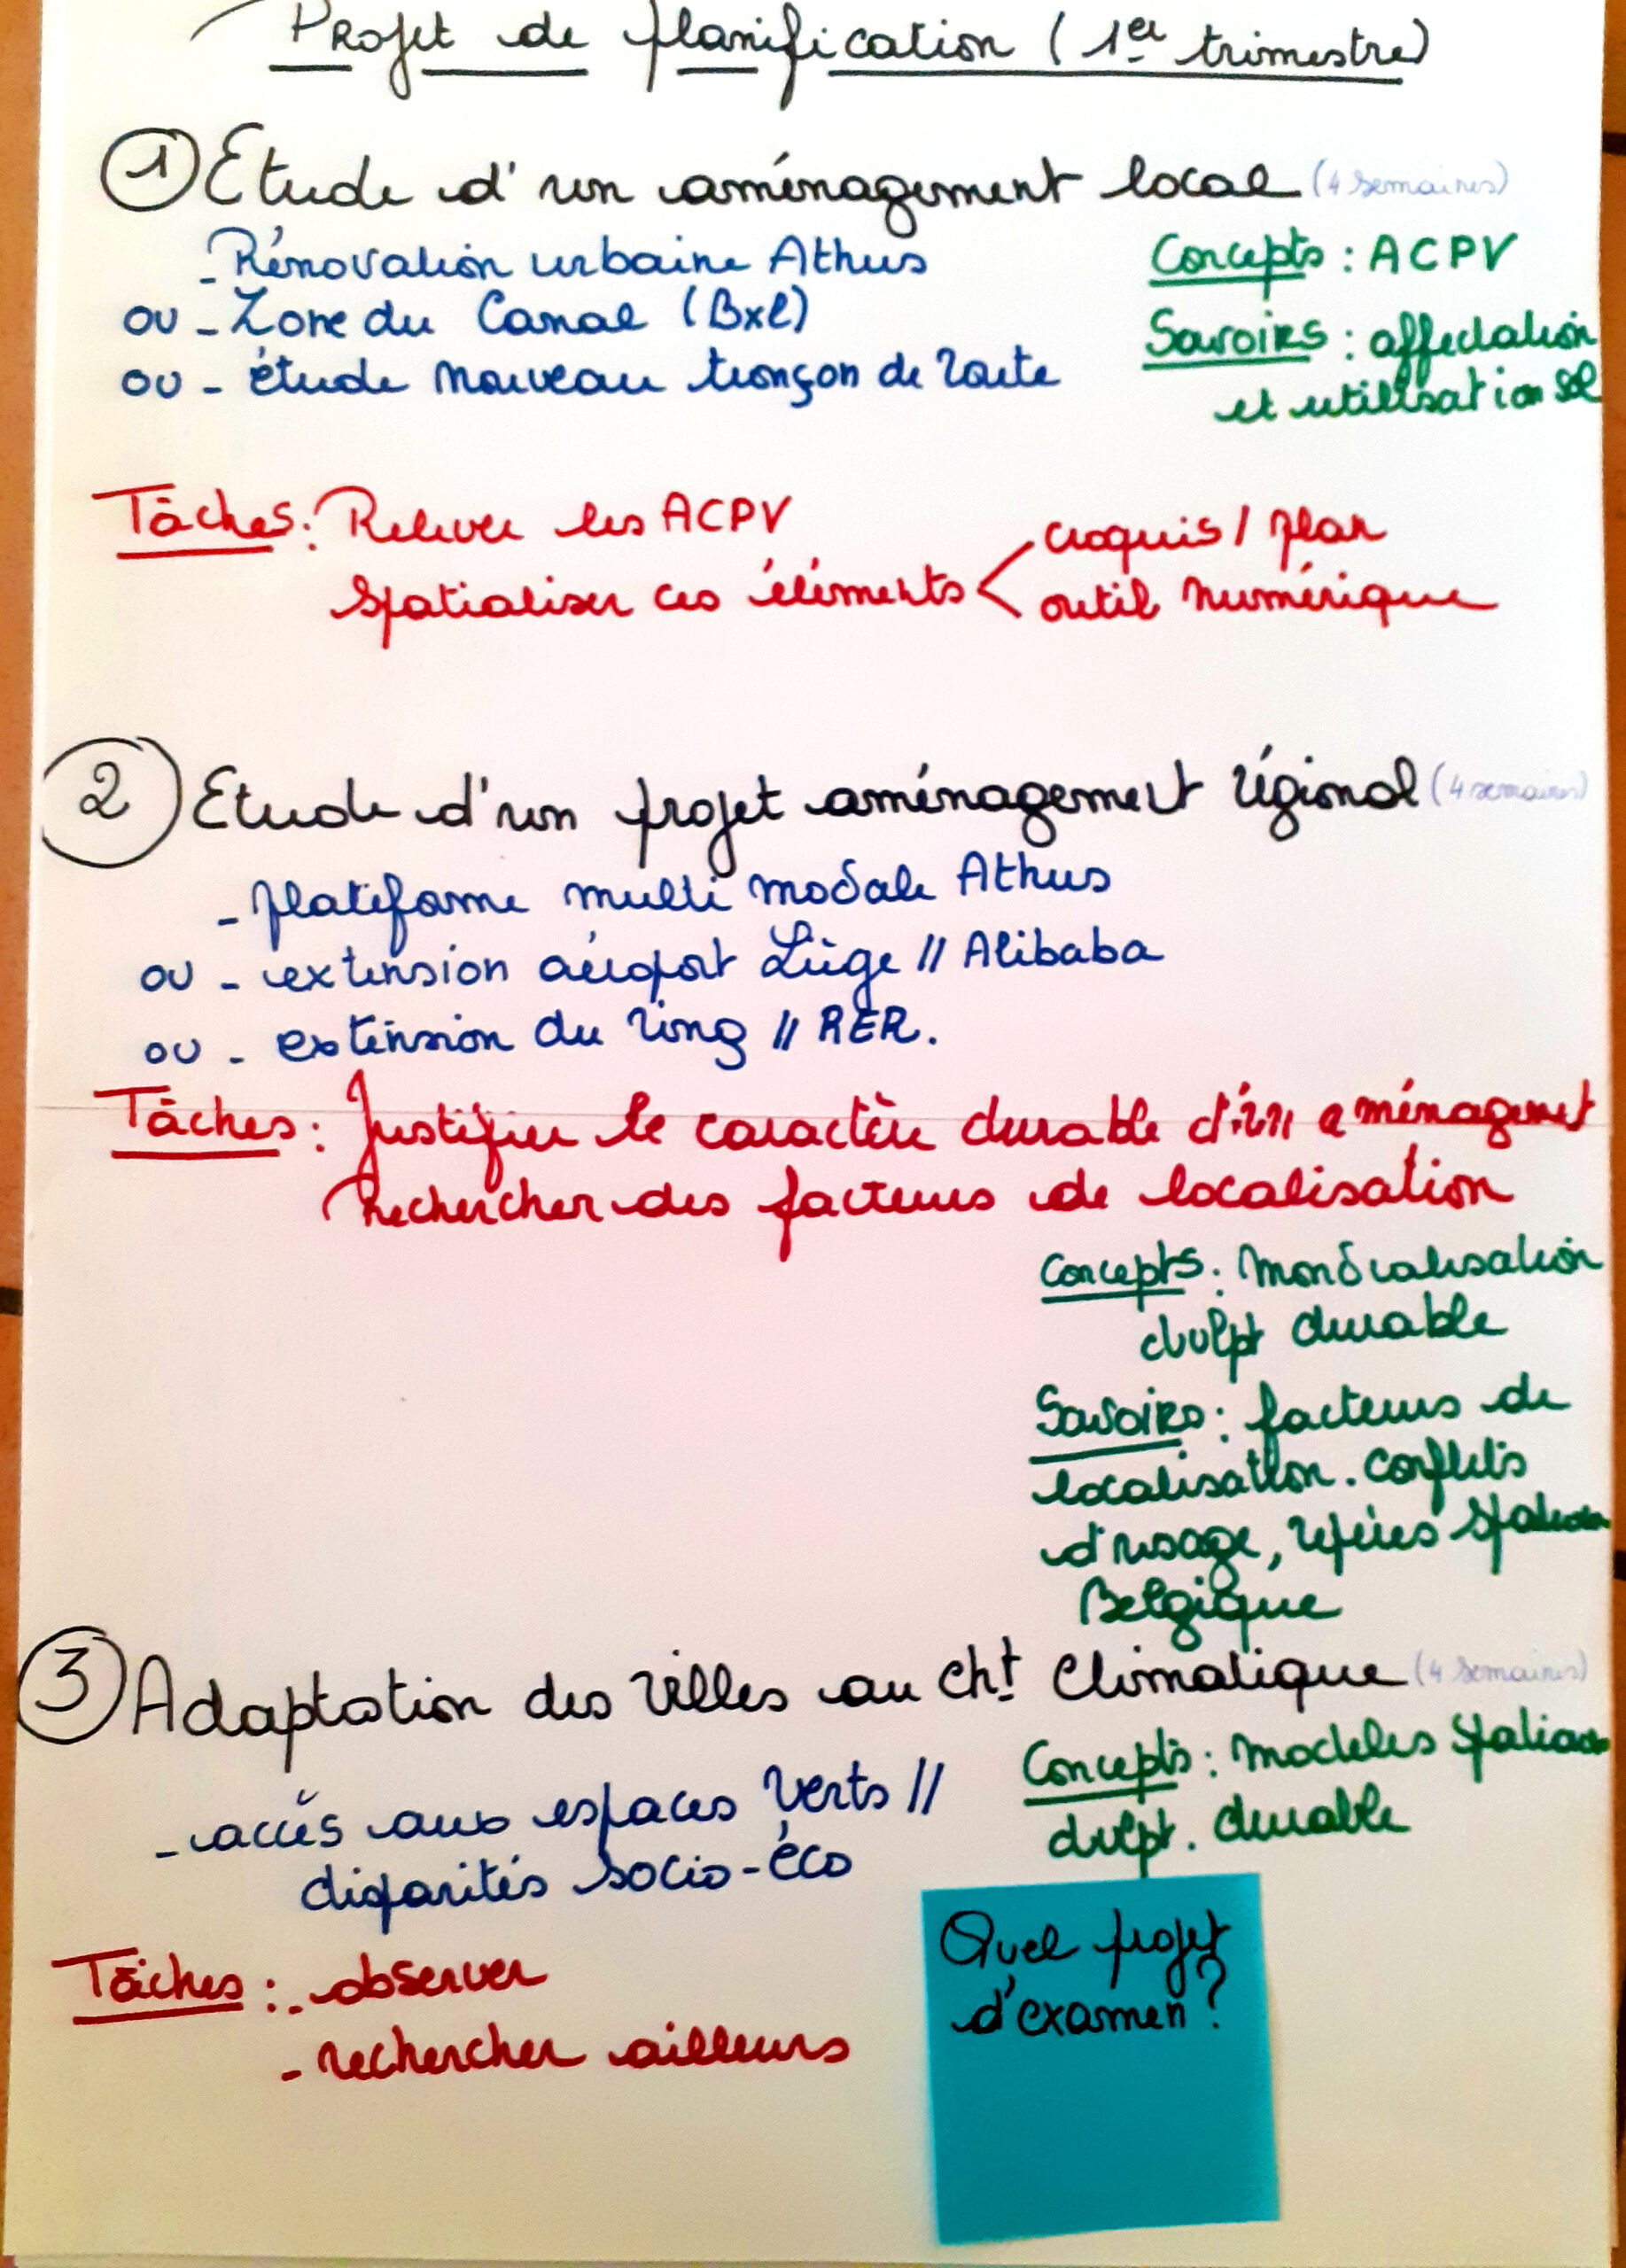 Projet de planification (1er trimestre)
1 Etude d'un aménagement local (4 semaines)
- Rénovation urbaine Athus
ou - Zone du Canal (Bxl)
ou - étude nouveau tronçon de route
Concepts : ACPV
Savoirs : affectation
et utilisation sol
Tâches : Relever les ACPV
Spatialiser ces éléments < croquis / plan
outil numérique
2 Etude d'un projet aménagement régional (4 semaines)
- plateforme multi modale Athus
ou - extension aéroport Liège // Alibaba
ou - extension du ring // RER.
Tâches : Justifier le caractère durable d'un aménagement
Rechercher des facteurs de localisation
Concepts : mondialisation
dvlpt durable
Savoirs : facteurs de
localisation. conflits
d'usage, repères spatiaux
Belgique
3 Adaptation des villes au cht climatique (4 semaines)
- accès aux espaces verts //
disparités socio-éco
Concepts : modèles spatiaux
dvlpt. durable
Tâches : - observer
- rechercher ailleurs
Quel projet
d'examen ?